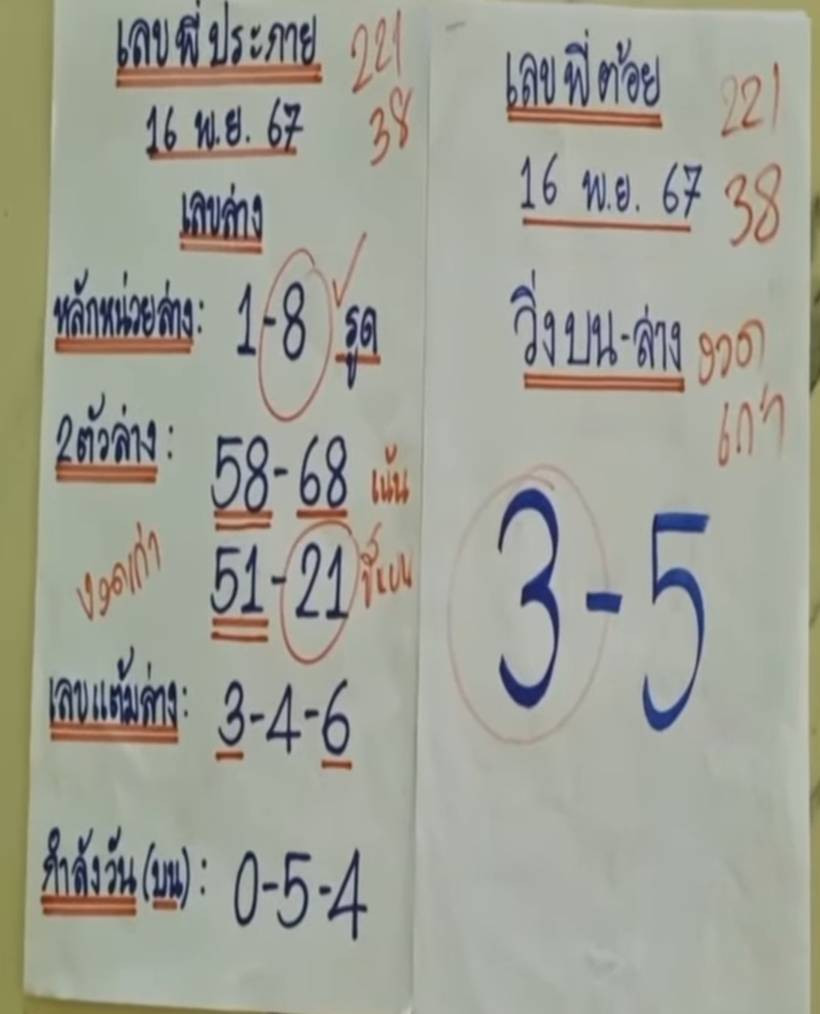 เลขพี่ประกาย 221
16 พ.ย. 67 38
เลขล่าง
หลักหน่วยล่าง: 1-8 รูด
2ตัวล่าง: 58-68 เน้น
งวดเก่า 51-21 ชี้บน
เลขแต้มล่าง: 3-4-6
กำลังวัน (บน): 0-5-4
เลขพี่ต้อย 221
16 พ.ย. 67 38
วิ่งบน-ล่าง งวด
เก่า
3-5